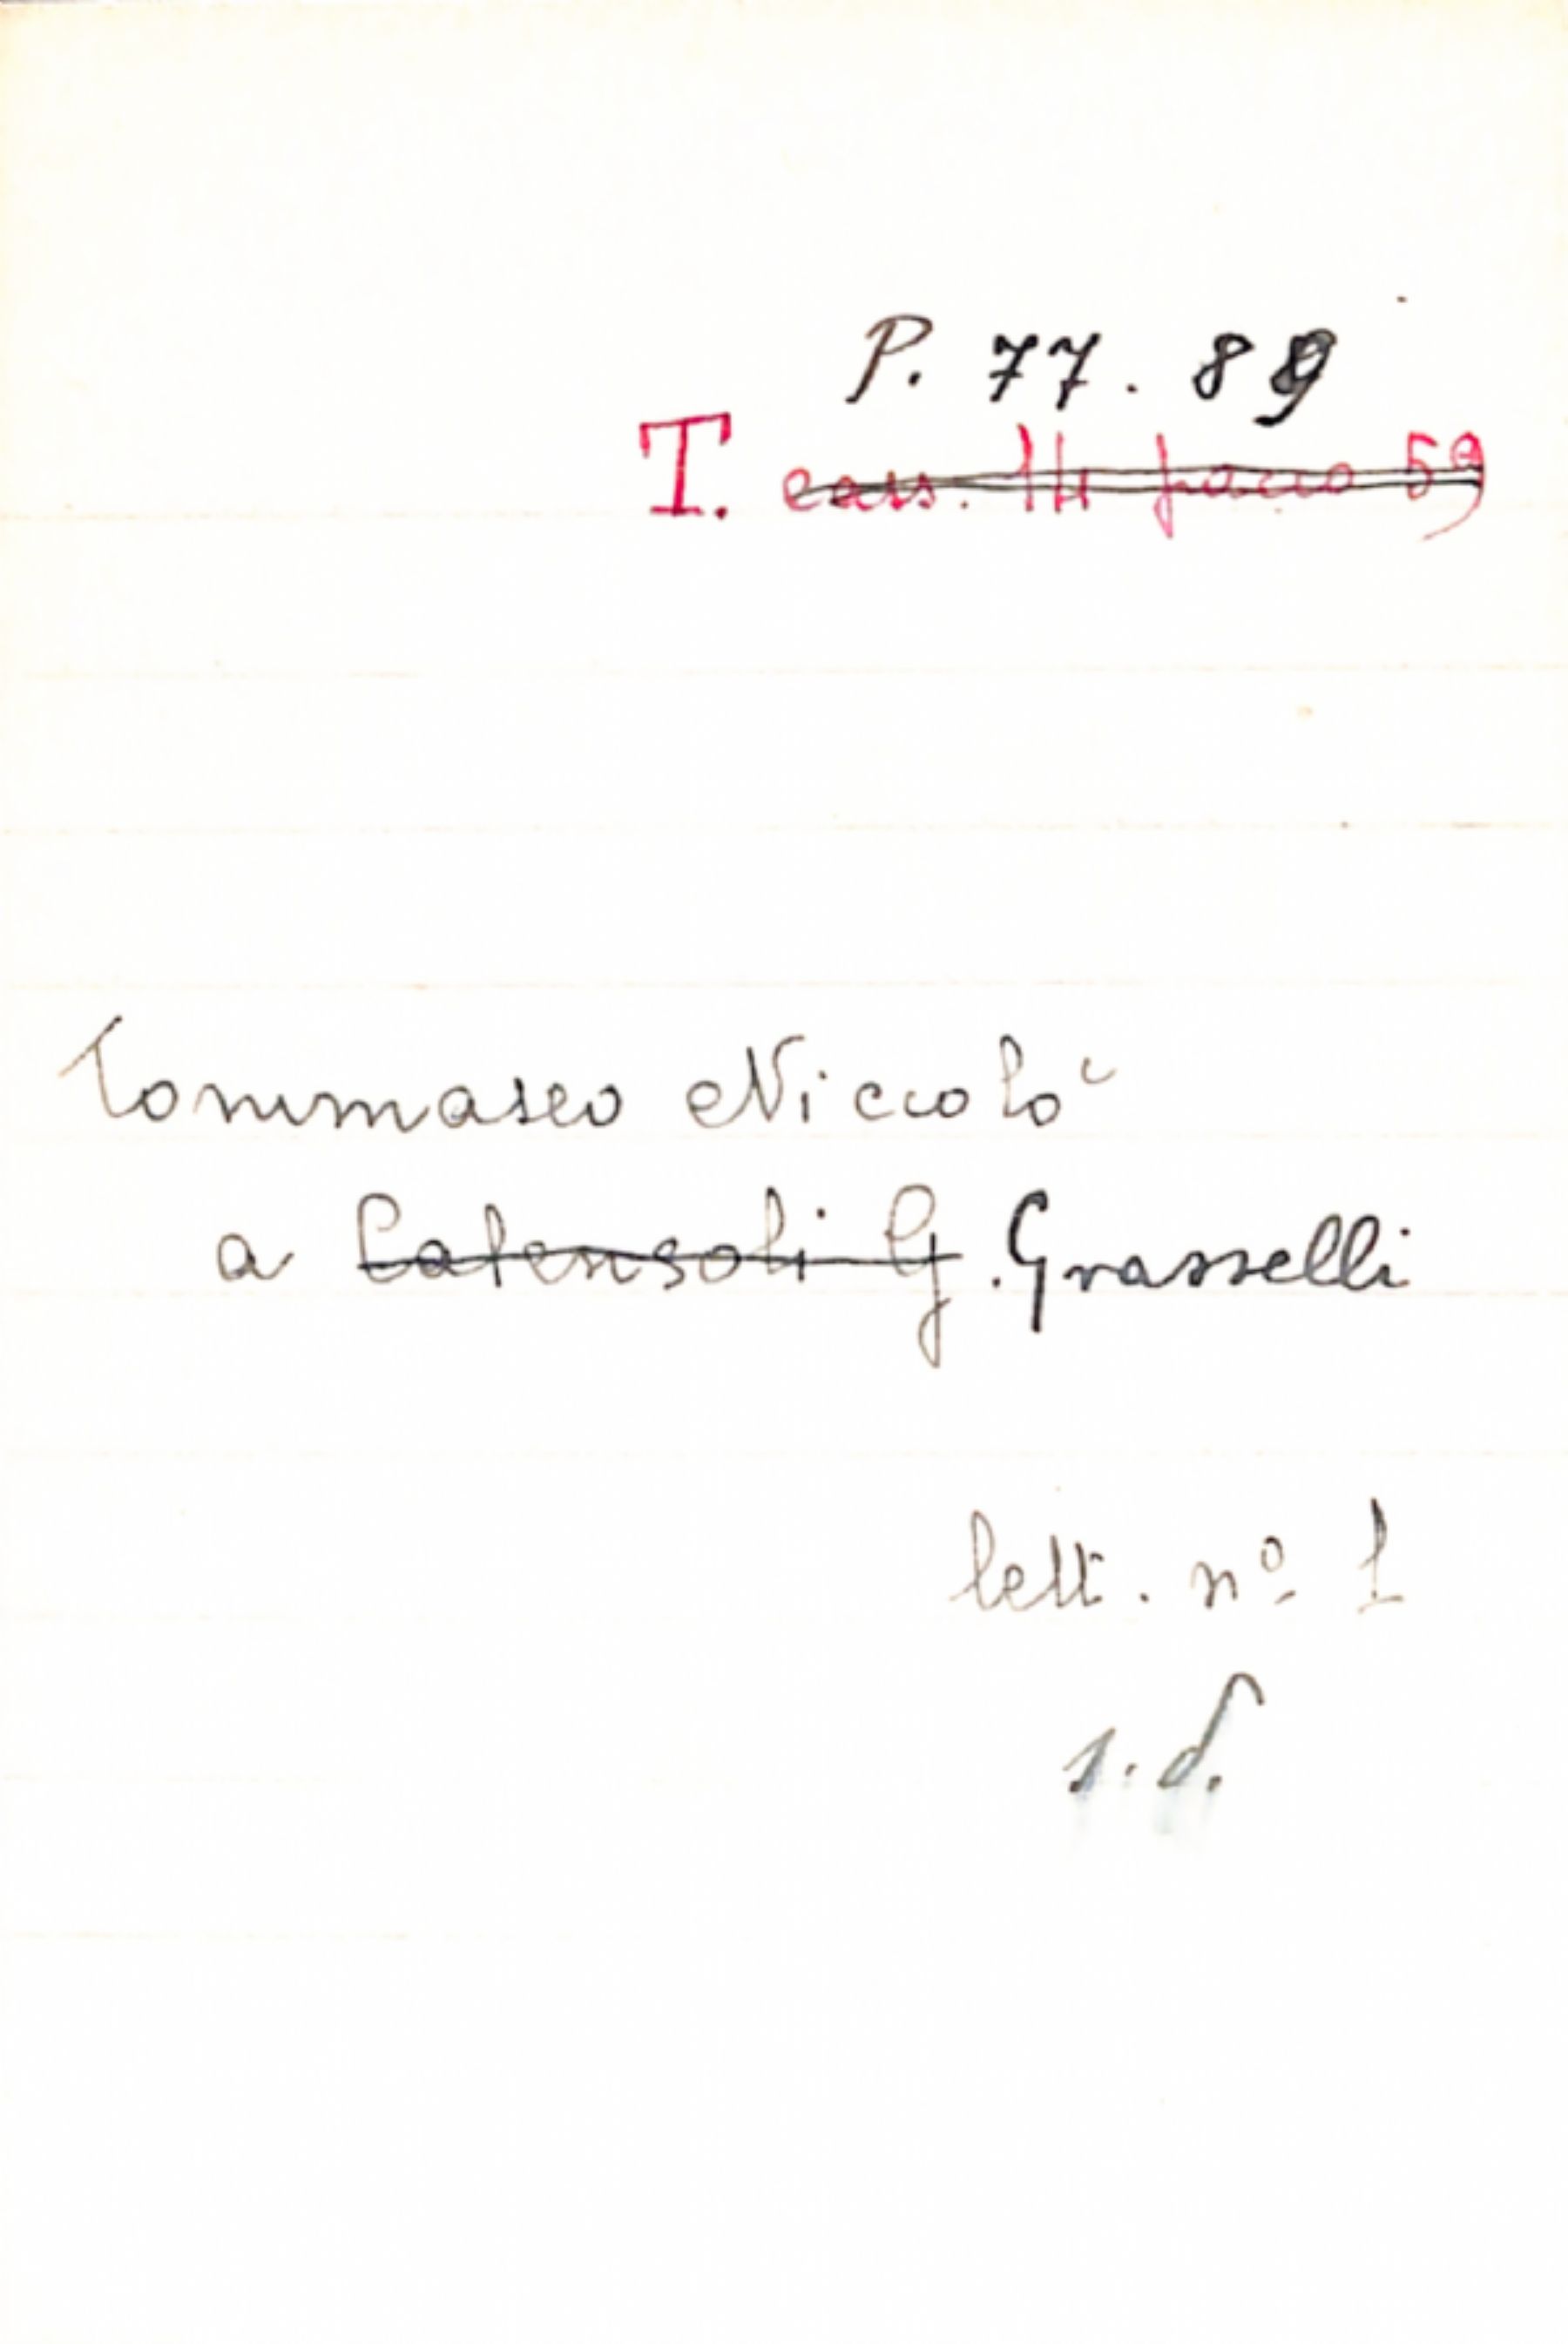 P. 77. 89
T. cass. 14 pacco 59
Tommaseo Niccolò
a Catensoli G. Grasselli
lett. nº 1
s.d.